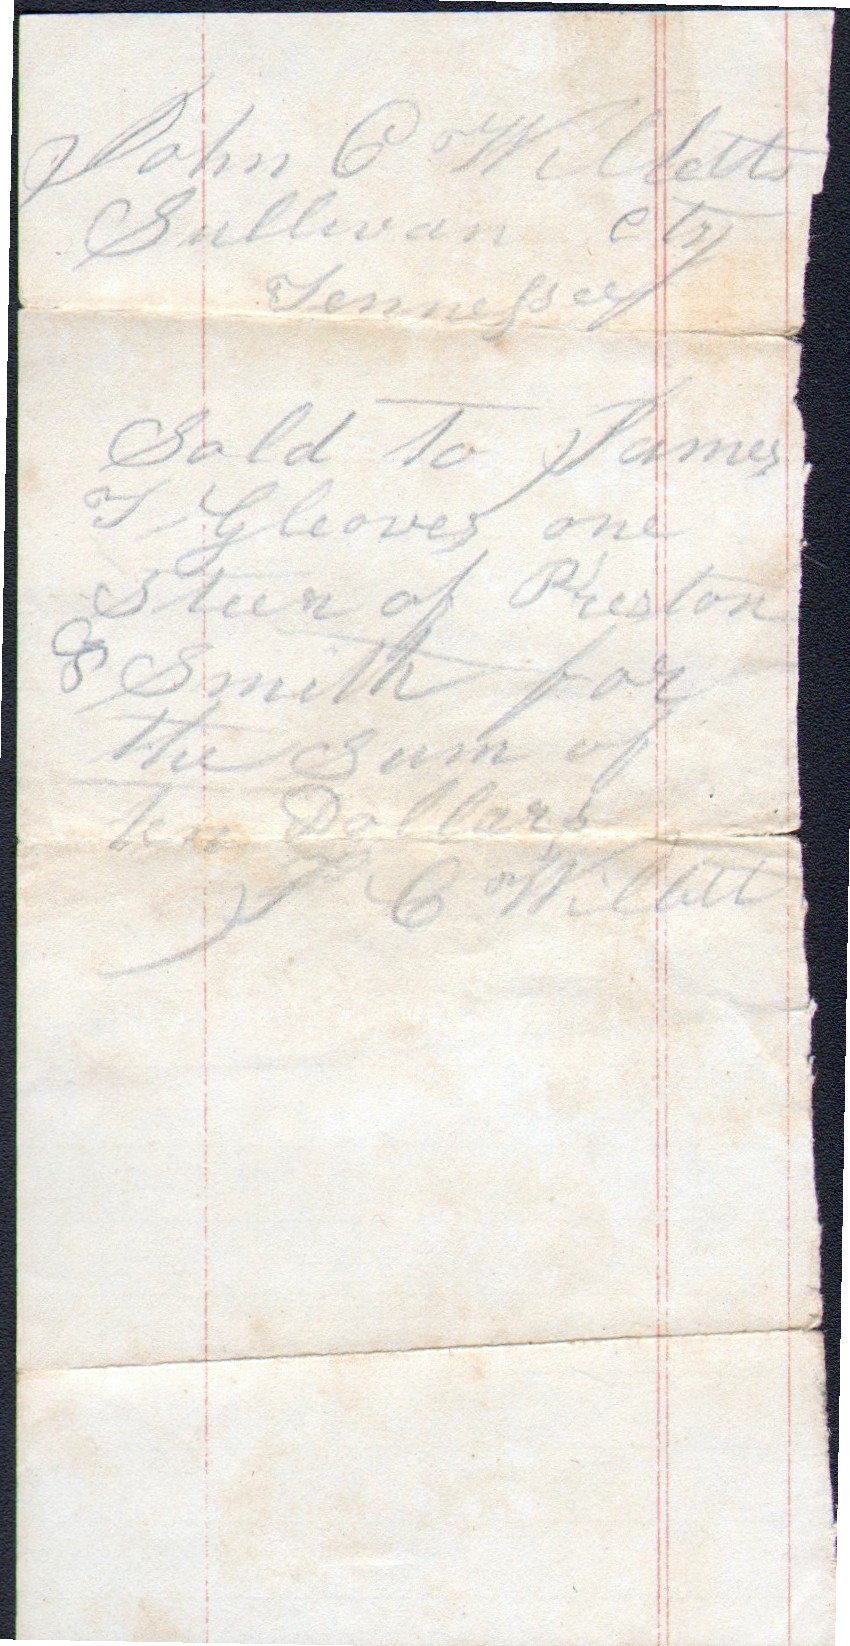 John C Willett
Sullivan Cty
Tennessee
Sold To James
T Gleaves one
Steer of Preston
& Smith for
the Sum of
ten Dollars
J C Willett